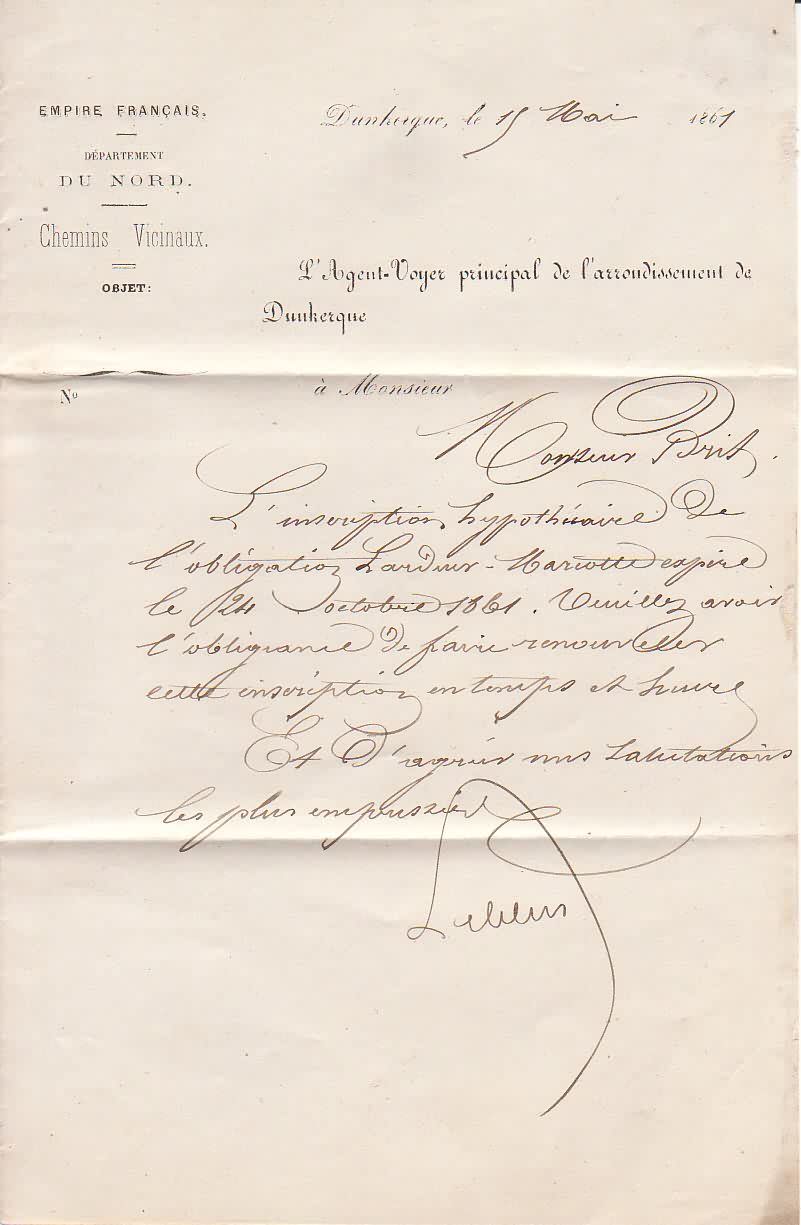 EMPIRE FRANÇAIS.
Dunkerque, le 15 Mai 1861
DÉPARTEMENT
DU NORD.
Chemins Vicinaux.
OBJET:
L'Agent-Voyer principal de l'arrondissement de
Dunkerque
No
à Monsieur
Monsieur
L'inscription hypothécaire de
l'obligation Lardeur - Mariotte expire
le 24 octobre 1861. Veuillez avoir
l'obligeance de faire renouveler
cette inscription en temps et heure
Et d'agréer mes salutations
les plus empressées